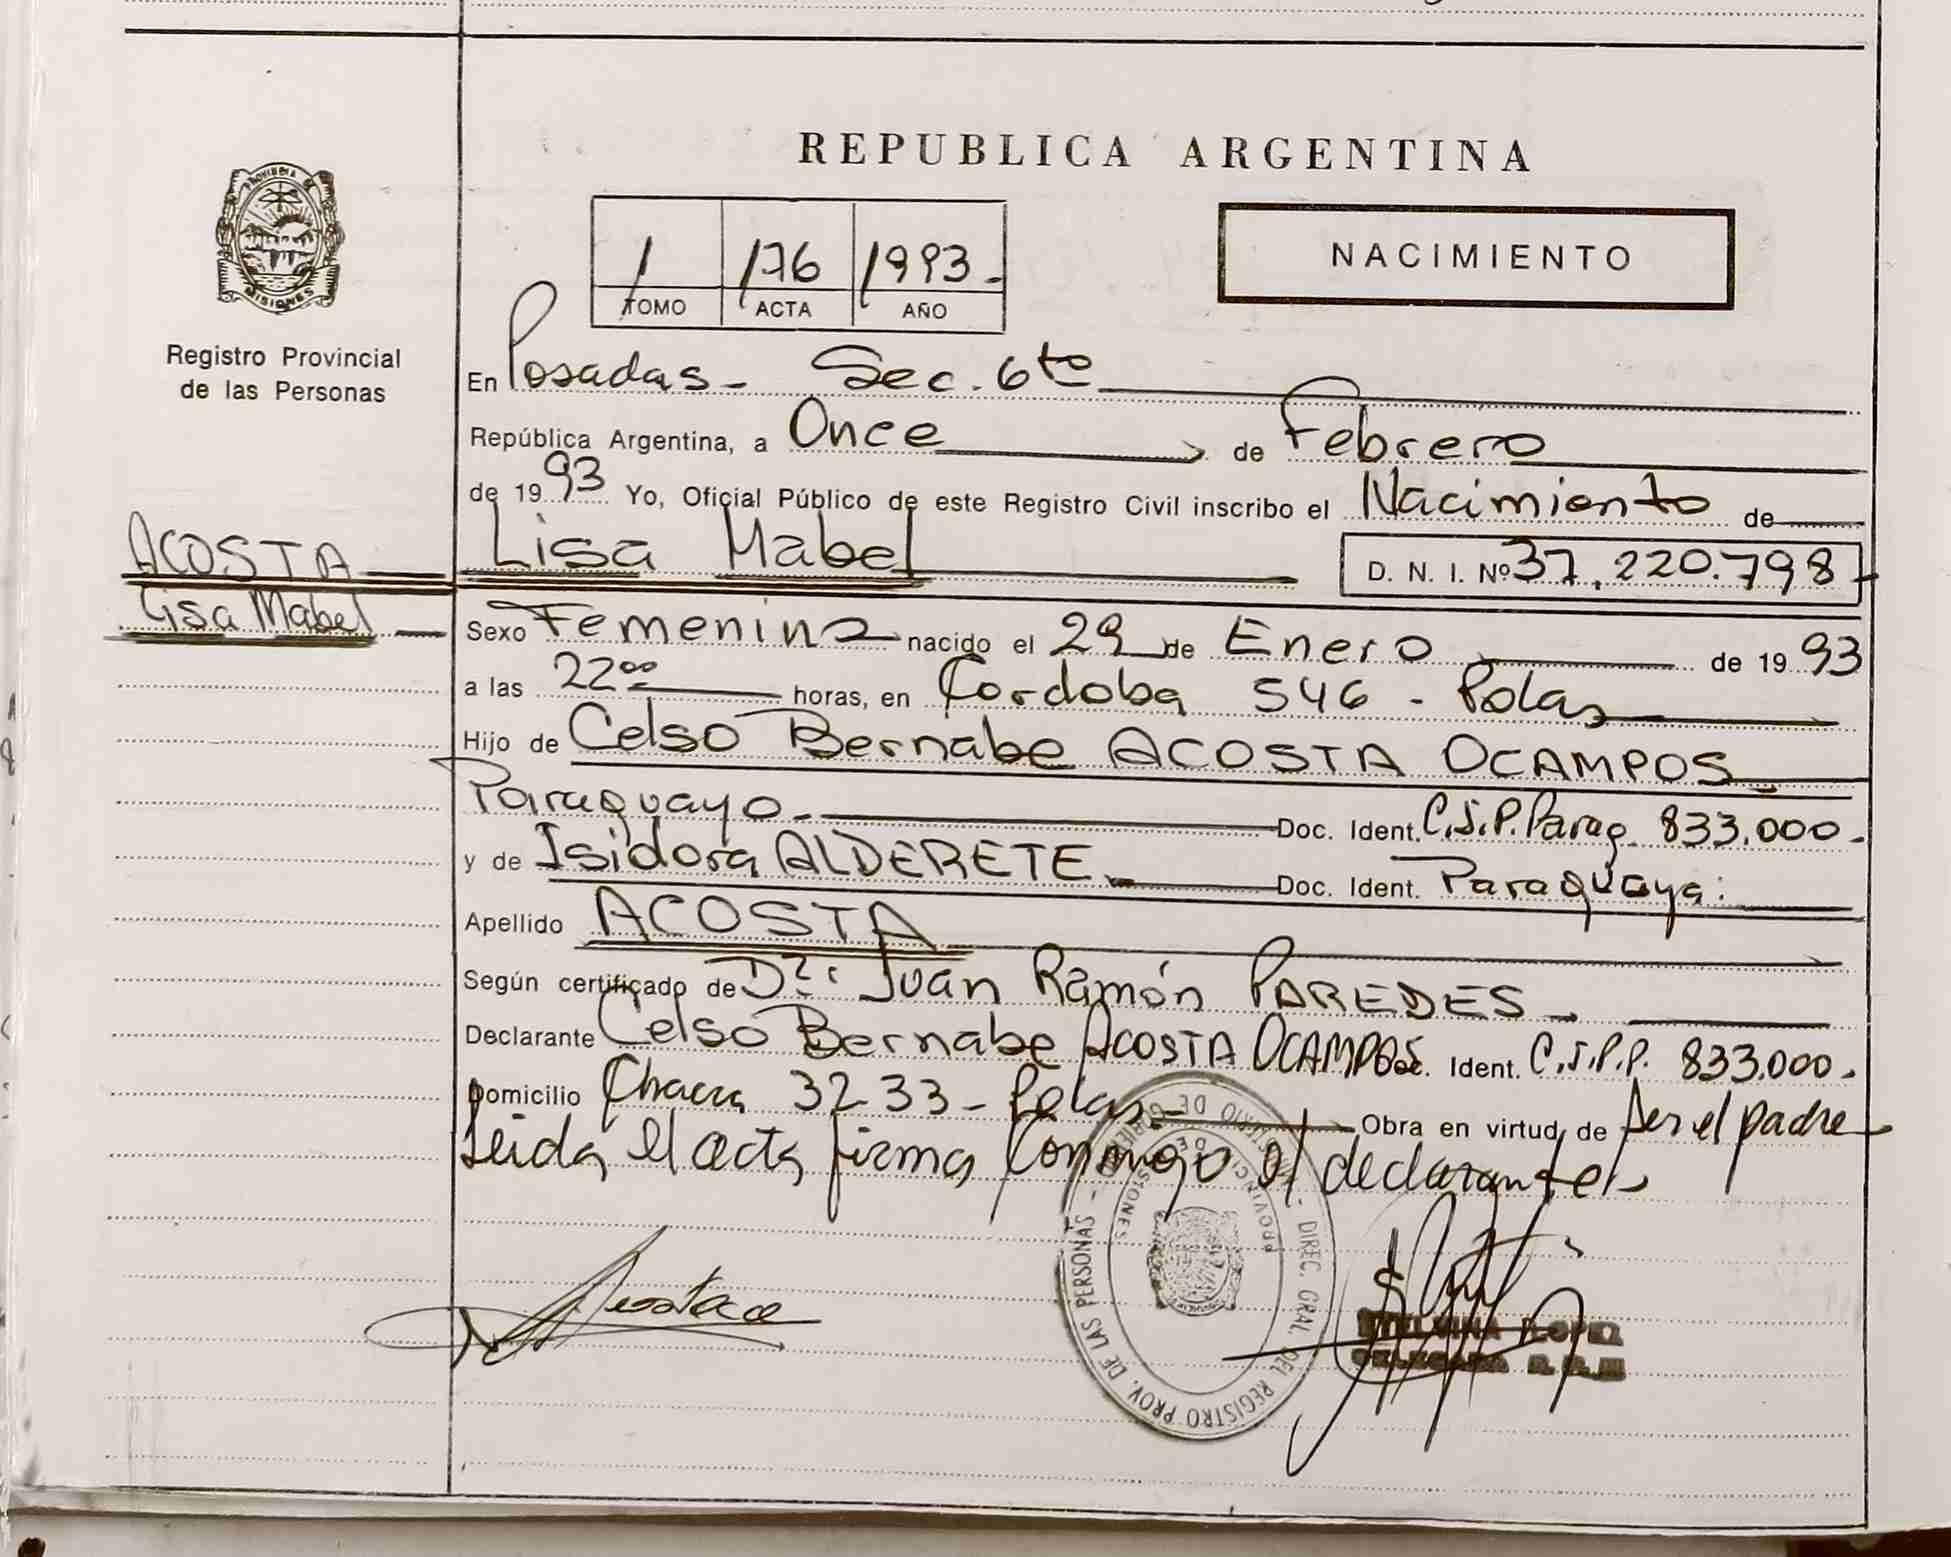 REPUBLICA ARGENTINA
PROVINCIA DE
MISIONES
Registro Provincial
de las Personas
1 176 1993.
TOMO ACTA AÑO
NACIMIENTO
En Posadas - Sec. 6ta
República Argentina, a Once de Febrero
de 1993 Yo, Oficial Público de este Registro Civil inscribo el Nacimiento de
ACOSTA
Lisa Mabel
Lisa Mabel D. N. I. Nº 37.220.798
Sexo Femenino nacido el 29 de Enero de 1993
a las 22 00 horas, en Córdoba 546 - Pdas
Hijo de Celso Bernabe ACOSTA OCAMPOS
Paraguayo. Doc. Ident. C.I.P. Parag. 833.000.
y de Isidora ALDERETE Doc. Ident. Paraguaya:
Apellido ACOSTA
Según certificado de Dr: Juan Ramón PAREDES
Declarante Celso Bernabe ACOSTA OCAMPOS Doc. Ident. C.I.P.P. 833.000.
Domicilio Chacra 32 33 - Pdas - Obra en virtud de Ser el padre
Leida el acta firma conmigo el declarante
MINISTERIO DE GOBIERNO - DIREC. GRAL. DEL REGISTRO PROV. DE LAS PERSONAS -
PROVINCIA DE MISIONES
LOPEZ
DELEGADA